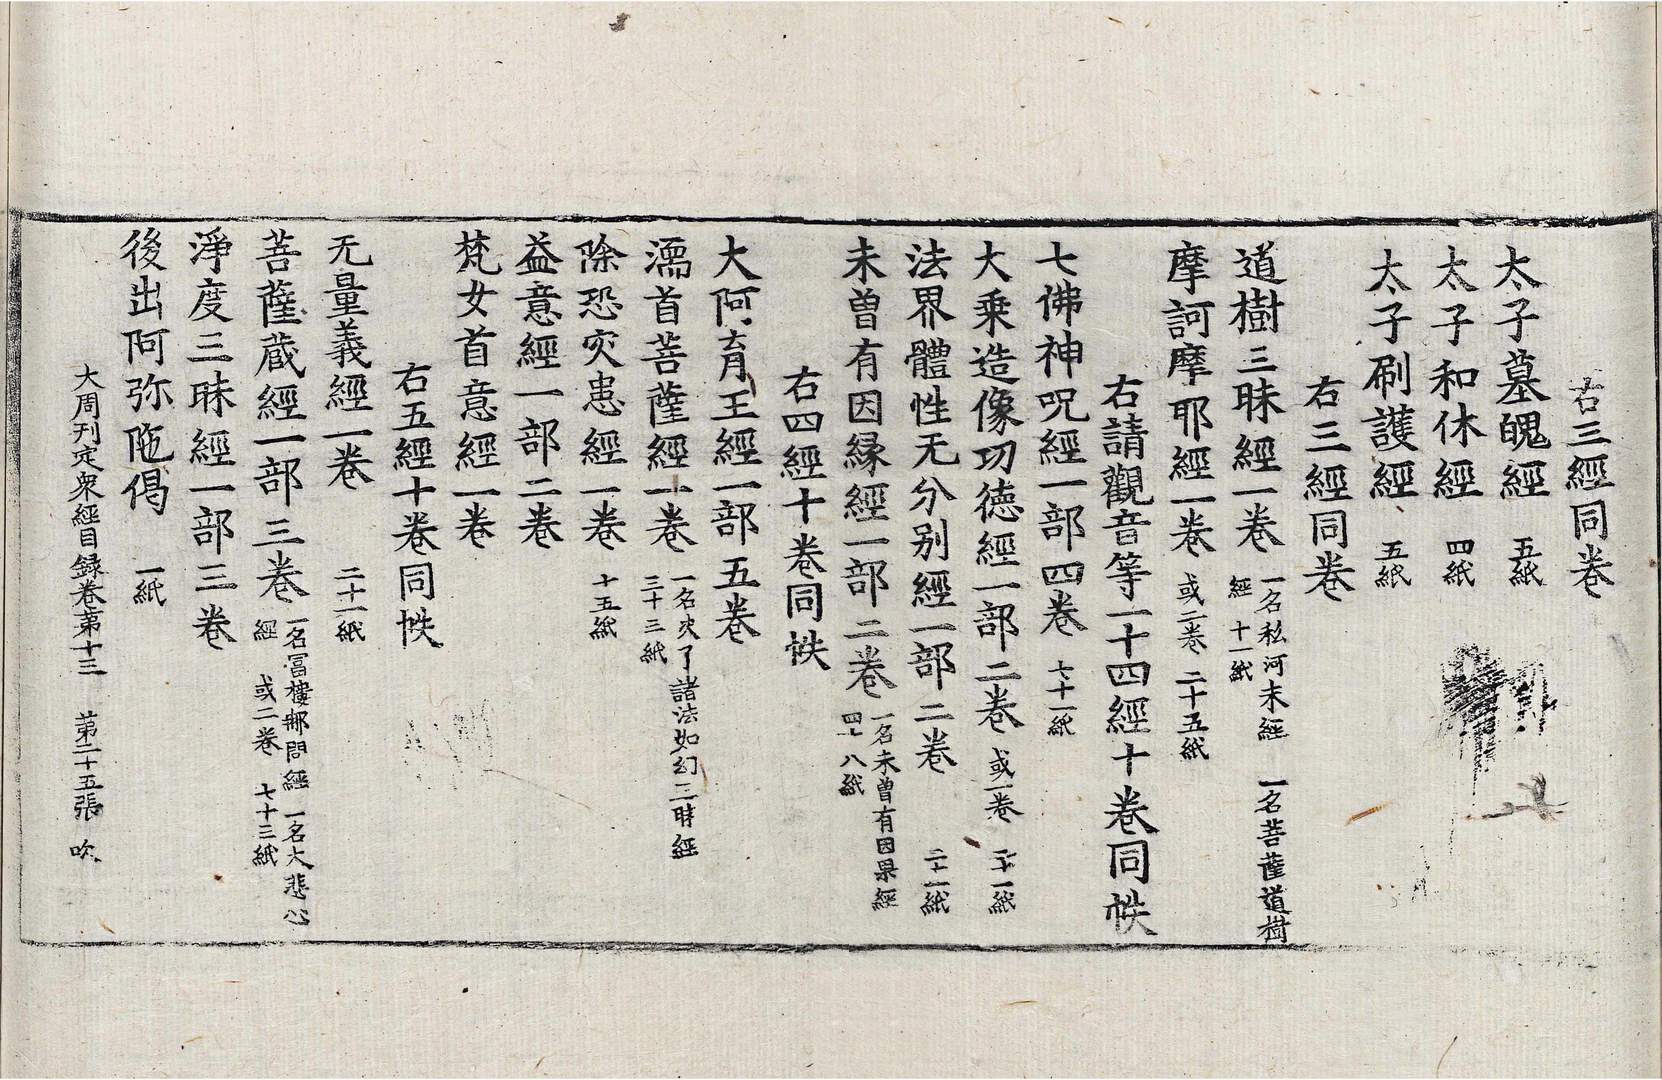 右三經同卷
太子墓魄經 五紙
太子和休經 四紙
太子刷護經 五紙
右三經同卷
道樹三昧經一卷 一名私河末經 一名菩薩道樹經 十一紙
摩訶摩耶經一卷 或二卷 二十五紙
右請觀音等一十四經十卷同帙
七佛神呪經一部四卷 七十一紙
大乘造像功德經一部二卷 或一卷 二十一紙
法界體性无分别經一部二卷 二十一紙
未曾有因緣經一部二卷 一名未曾有因果經 四十八紙
右四經十卷同帙
大阿育王經一部五卷
濡首菩薩經一卷 一名决了諸法如幻三昧經 三十三紙
除恐灾患經一卷 十五紙
益意經一部二卷
梵女首意經一卷
右五經十卷同帙
无量義經一卷 二十一紙
菩薩蔵經一部三卷 一名冨樓郍問經 一名大悲心經 或二卷 七十三紙
淨度三昧經一部三卷
後出阿弥陁偈 一紙
大周刊定衆經目録卷第十三 第二十五張 吹